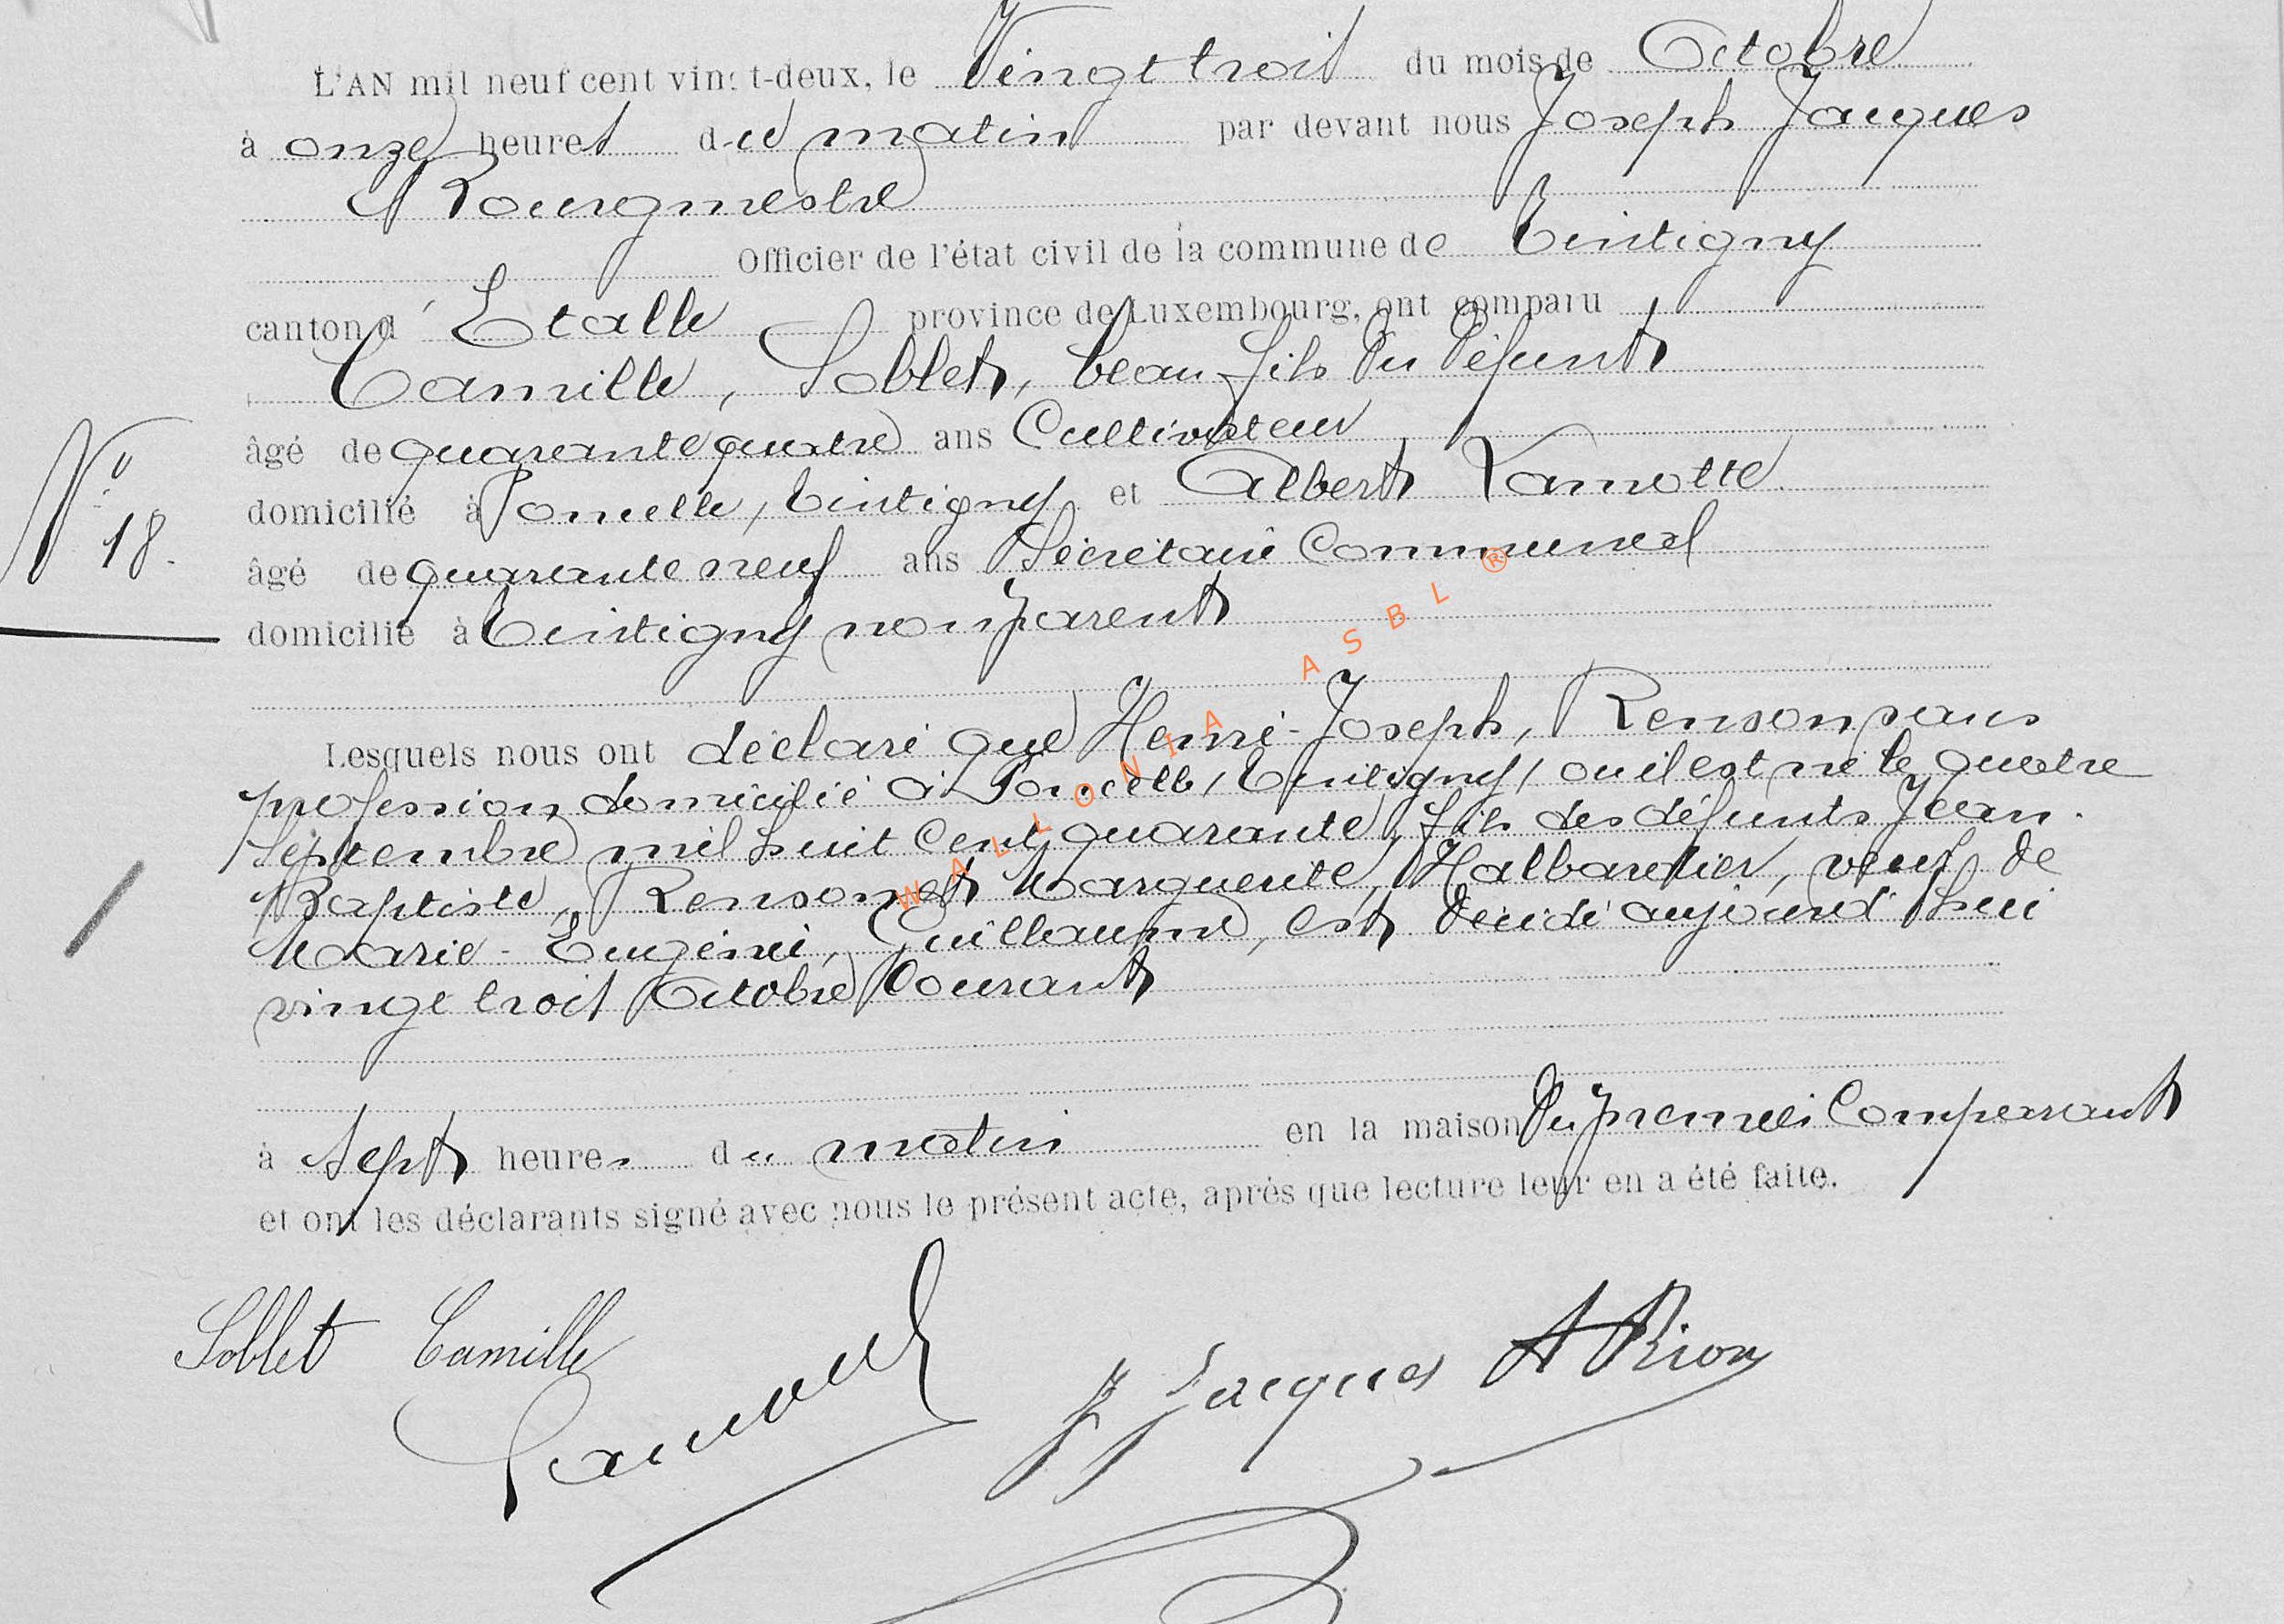 L'AN mil neuf cent vingt-deux, le Vingt trois du mois de Octobre
à onze heures du matin par devant nous Joseph Jacques
Bourgmestre
Officier de l'état civil de la commune de Tintigny
canton d'Etalle province de Luxembourg, ont comparu
Camille, Soblet, beau-fils du défunt
âgé de quarante quatre ans Cultivateur
domicilié à Poncelle, Tintigny et Albert Lamotte
N° 18.
âgé de quarante neuf ans Secrétaire Communal
domicilié à Tintigny non parent
Lesquels nous ont déclaré que Henri-Joseph, Renson sans
profession domicilié à Poncelle, Tintigny, où il est né le quatre
Septembre mil huit cent quarante, fils des défunts Jean-
Baptiste, Renson et Marguerite, Halbardier, veuf de
Marie-Eugénie, Guillaume, est décédé aujourd'hui
vingt trois Octobre Courant
à sept heures du matin en la maison du premier Comparant
et ont les déclarants signé avec nous le présent acte, après que lecture leur en a été faite.
Soblet Camille
J Jacques A Rion
WALLONIA ASBL ®